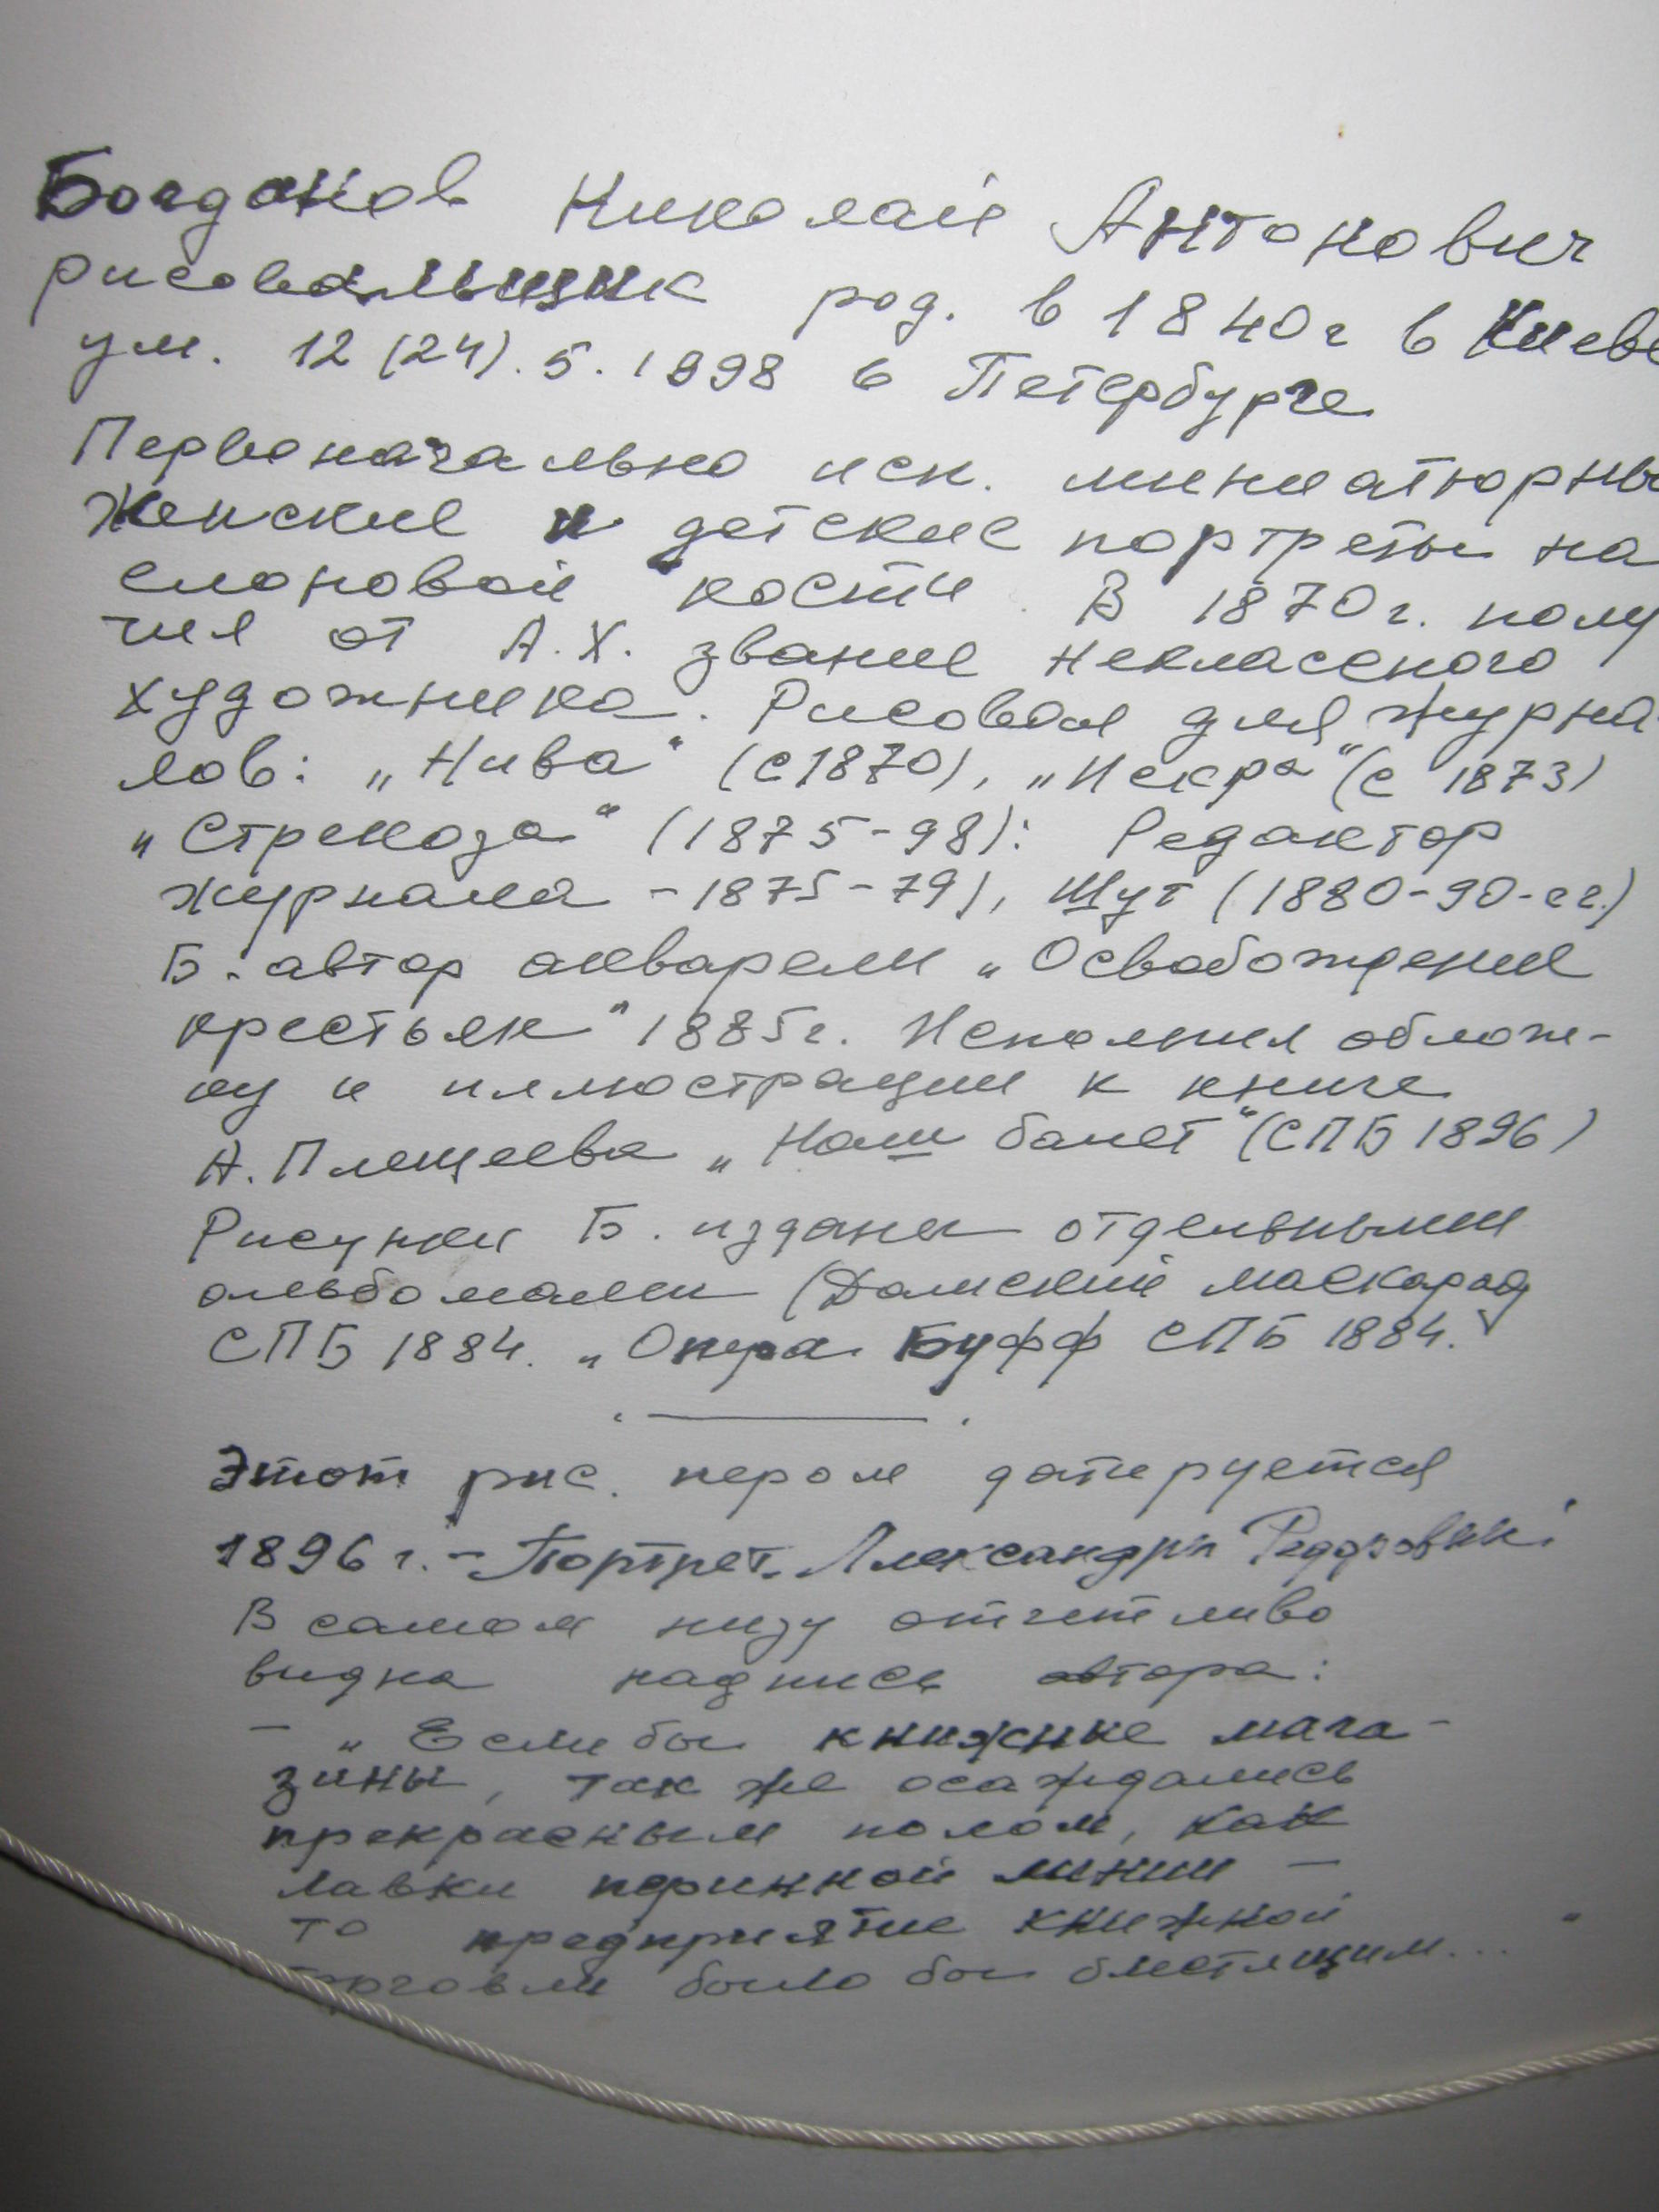 Богданов Николай Антонович
рисовальщик род. в 1840г в Киеве
ум. 12 (24). 5. 1898 в Петербурге
Первоначально исп. миниатюрны
женские и детские портреты на
слоновой кости. В 1870г. полу
чил от А.Х. звание неклассного
художника. Рисовал для журна-
лов: „Нива“ (с 1870), „Искра“ (с 1873)
„Стрекоза“ (1875-98): Редактор
журнала - 1875-79), Шут (1880-90-гг.)
Б. автор акварели „Освобождение
крестьян“ 1885г. Исполнил облож-
ку и иллюстрации к книге
А. Плещеева „Наш балет“ (СПБ 1896)
Рисунки Б. изданы отдельными
альбомами (Дамский маскарад
СПБ 1884. „Опера Буфф СПБ 1884.
Этот рис. пером датируется
1896 г. - Портрет Александры
В самом низу отчетливо
видна надпись автора:
- „Если бы книжные мага-
зины, так же осаждались
прекрасным полом, как
лавки перинной линии -
то предприятие книжной
торговли было бы блестящим..."